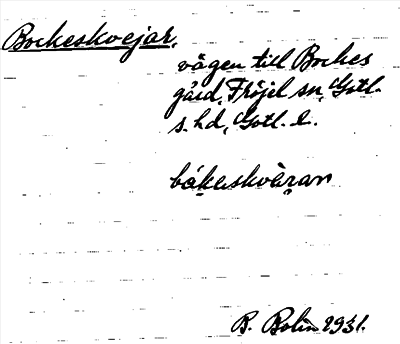 Bockeskvejar,
vägen till Bockes
gård, Fröjel sn, Gotl.
s. hd, Gotl. l.
båkeskvàran
B. Bolin 1931.